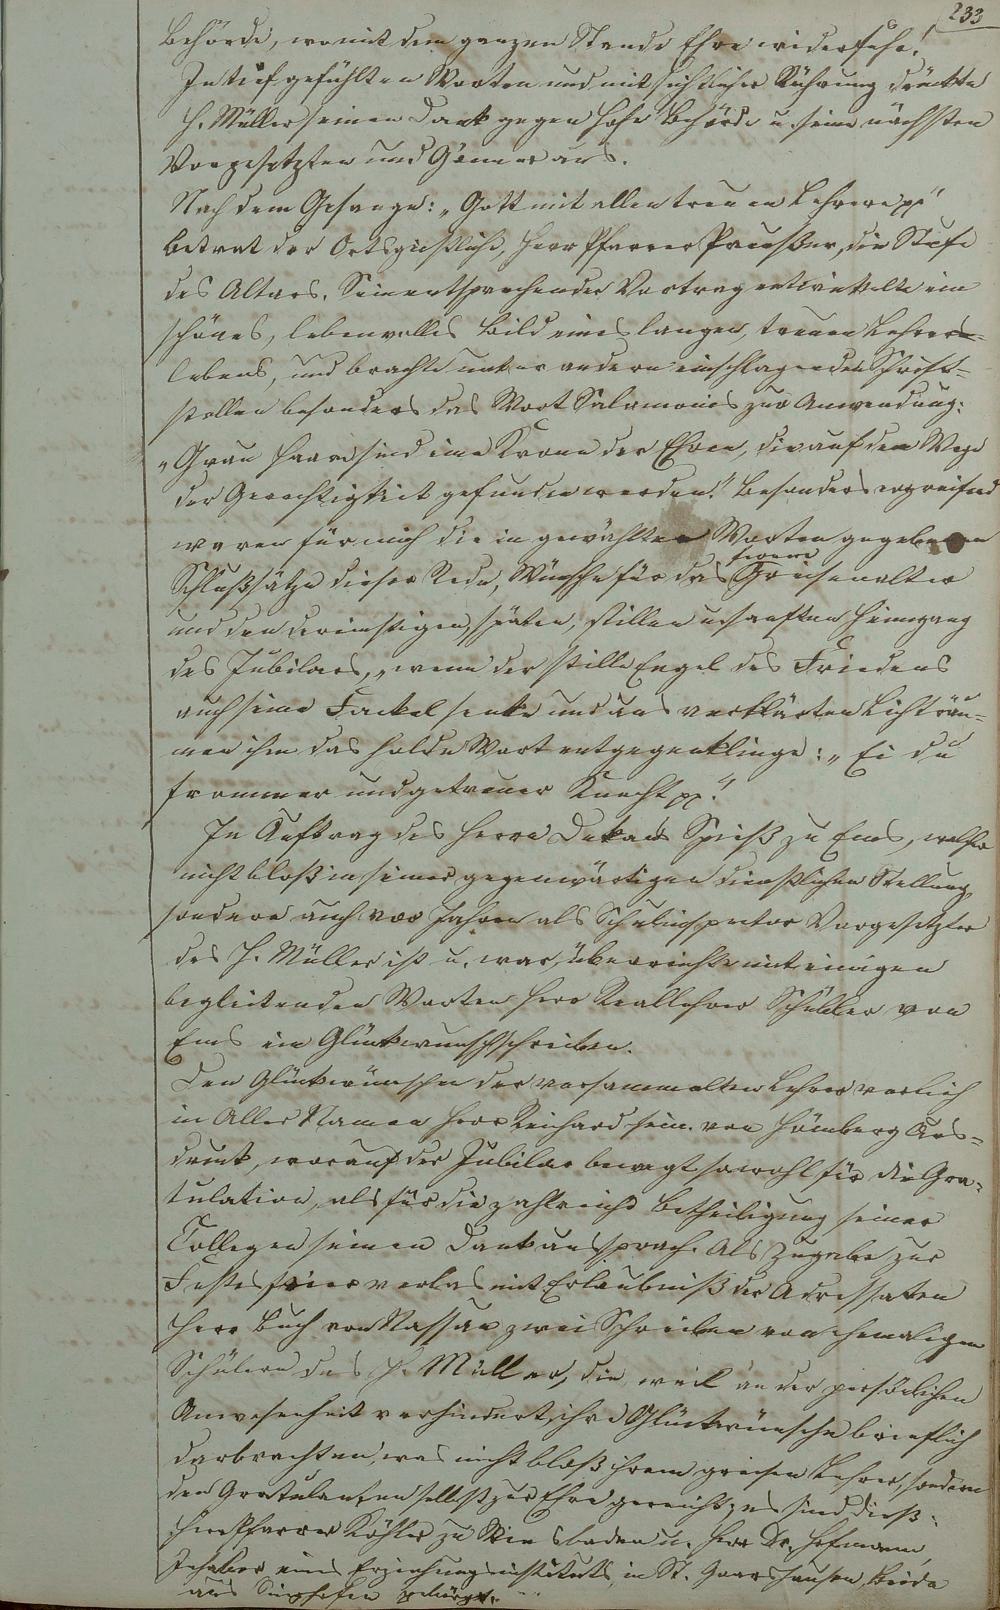 233
Behörde, womit dem ganzen Stande Ehre widerfahre.
In tief gefühlten Worten und mit sichtlicher Rührung drückte
H. Müller seinen Dank gegen hohe Behörde u. seine nächsten
Vorgesetzten und Gönner aus.
Nach dem Gesange: „Gott mit allen treuen Lehrern pp“
betrat der Ortsgeistliche, Herr Pfarrer Preußer, die Stufe
des Altars. Sein entsprechender Vortrag entwickelte ein
schönes, lebenvolles Bild eines langen, treuen Lehrer-
lebens, und brachte unter andern einschlagenden Schrift-
stellen besonders das Wort Salomonis zur Anwendung:
„Graue Haare sind eine Krone der Ehren, die auf dem Wege
der Gerechtigkeit gefunden werden.“ Besonders ergreifend
waren für mich die in gewählten Worten gegebenen
Schlußsätze dieser Rede, Wünsche für das fernere Greisenalter
und den dereinstigen, späten, stillen u. sanften Heimgang
des Jubilars, „wenn der stille Engel des Friedens
auch seine Fackel senke und aus verklärten Lichträu-
men ihm das holde Wort entgegenklinge: „Ei du
frommer und getreuer Knecht pp.“
Im Auftrag des Herrn Dekans Spieß zu Ems, welcher
nicht bloß in seiner gegenwärtigen dienstlichen Stellung
sondern auch vor Jahren als Schulinspector Vorgesetzter
des H. Müller ist u. war, überreichte mit einigen
begleitenden Worten Herr Reallehrer Schüller von
Ems ein Glückwunschschreiben.
Den Glückwünschen der versammelten Lehrer verlieh
in Aller Namen Herr Reichard sen. von Hömberg Aus-
druck, worauf der Jubilar bewegt sowohl für die Gra-
tulation, als für die zahlreiche Betheiligung seiner
Collegen seinen Dank aussprach. Als Zugabe zur
Festesfeier verlas mit Erlaubniß der Adressaten
Herr Buch von Nassau zwei Schreiben von ehemaligen
Schülern des H. Müller, die, weil an der persönlichen
Anwesenheit verhindert, ihre Glückwünsche brieflich
darbrachten, was nicht bloß ihrem greisen Lehrer, sondern
den Gratulanten selbst zur Ehre gereicht; es sind dieß:
Herr Pfarrer Köhler zu Wiesbaden u. Herr Dr. Hofmann,
Inhaber eines Erziehungsinstituts in St. Goarshausen, Beide
aus Singhofen gebürtig.